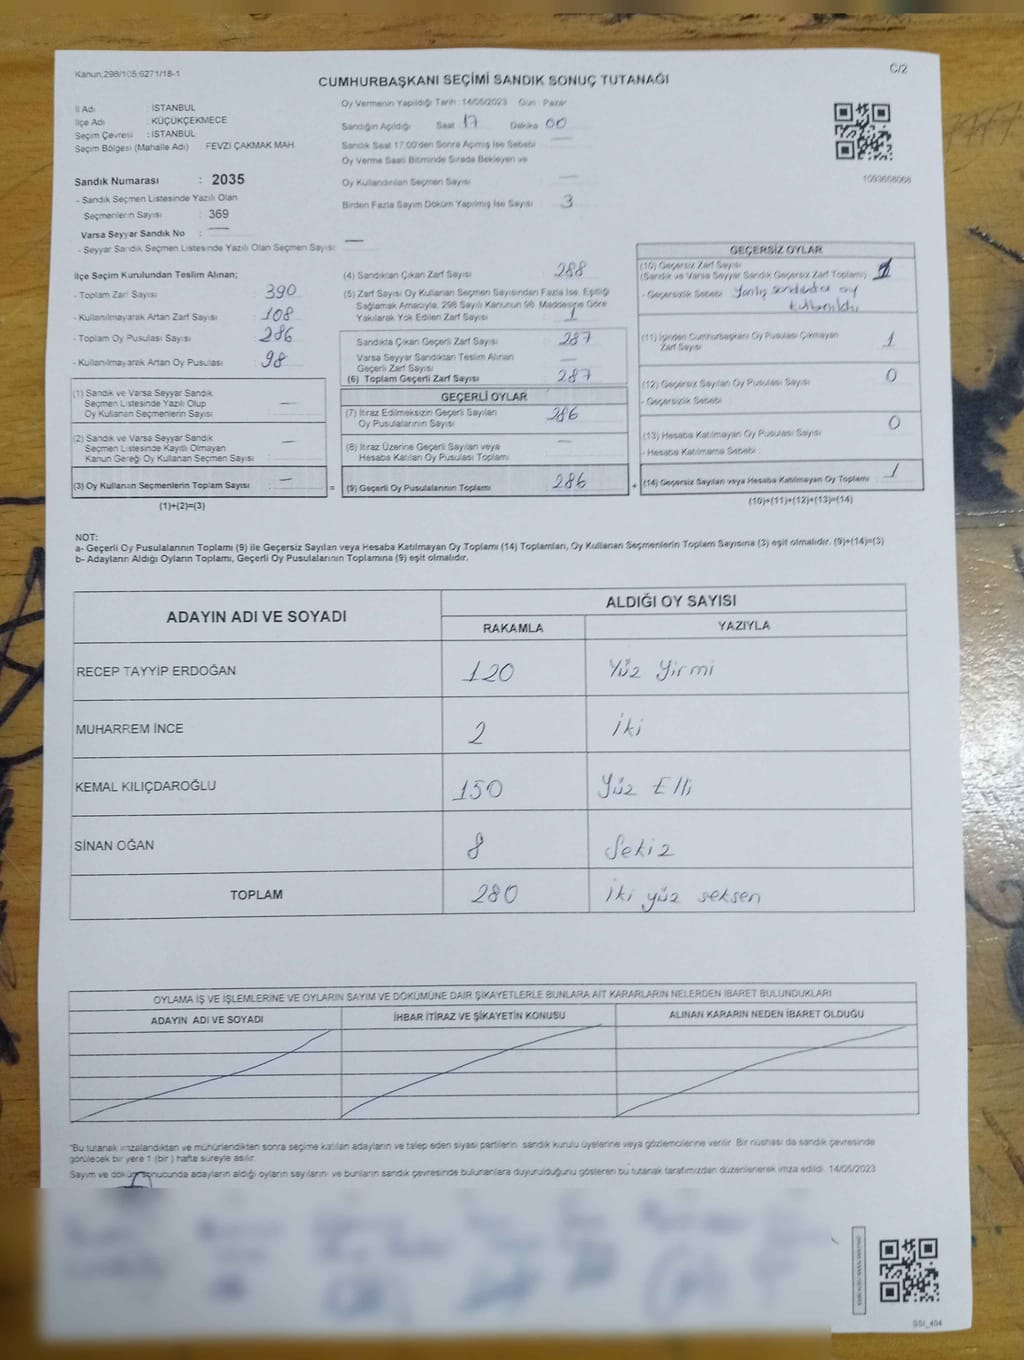 Kanun:298/105;6271/18-1
C/2
CUMHURBAŞKANI SEÇİMİ SANDIK SONUÇ TUTANAĞI
İl Adı : İSTANBUL
İlçe Adı : KÜÇÜKÇEKMECE
Seçim Çevresi : İSTANBUL
Seçim Bölgesi (Mahalle Adı) FEVZİ ÇAKMAK MAH.
Sandık Numarası : 2035
- Sandık Seçmen Listesinde Yazılı Olan
Seçmenlerin Sayısı : 369
Varsa Seyyar Sandık No : —
- Seyyar Sandık Seçmen Listesinde Yazılı Olan Seçmen Sayısı : —
Oy Vermenin Yapıldığı Tarih : 14/05/2023 Gün : Pazar
Sandığın Açıldığı Saat 17 Dakika 00
Sandık Saat 17:00'den Sonra Açımış İse Sebebi —
Oy Verme Saati Bitiminde Sırada Bekleyen ve
Oy Kullandırılan Seçmen Sayısı —
Birden Fazla Sayım Döküm Yapılmış İse Sayısı 3
İlçe Seçim Kurulundan Teslim Alınan;
- Toplam Zarf Sayısı 390
- Kullanılmayarak Artan Zarf Sayısı 108
- Toplam Oy Pusulası Sayısı 286
- Kullanılmayarak Artan Oy Pusulası 98
(1) Sandık ve Varsa Seyyar Sandık
Seçmen Listesinde Yazılı Olup
Oy Kullanan Seçmenlerin Sayısı —
(2) Sandık ve Varsa Seyyar Sandık
Seçmen Listesinde Kayıtlı Olmayan
Kanun Gereği Oy Kullanan Seçmen Sayısı —
(3) Oy Kullanan Seçmenlerin Toplam Sayısı —
(1)+(2)=(3)
(4) Sandıktan Çıkan Zarf Sayısı 288
(5) Zarf Sayısı Oy Kullanan Seçmen Sayısından Fazla İse, Eşitliği
Sağlamak Amacıyla; 298 Sayılı Kanunun 98. Maddesine Göre
Yakılarak Yok Edilen Zarf Sayısı 1
Sandıkta Çıkan Geçerli Zarf Sayısı 287
Varsa Seyyar Sandıktan Teslim Alınan
Geçerli Zarf Sayısı —
(6) Toplam Geçerli Zarf Sayısı 287
GEÇERLİ OYLAR
(7) İtiraz Edilmeksizin Geçerli Sayılan
Oy Pusulalarının Sayısı 286
(8) İtiraz Üzerine Geçerli Sayılan veya
Hesaba Katılan Oy Pusulası Toplamı —
= (9) Geçerli Oy Pusulalarının Toplamı 286
GEÇERSİZ OYLAR
(10) Geçersiz Zarf Sayısı
(Sandık ve Varsa Seyyar Sandık Geçersiz Zarf Toplamı)
- Geçersizlik Sebebi Yanlış sandıkta oy
kullanıldı
(11) İçinden Cumhurbaşkanı Oy Pusulası Çıkmayan
Zarf Sayısı 1
(12) Geçersiz Sayılan Oy Pusulası Sayısı 0
- Geçersizlik Sebebi
(13) Hesaba Katılmayan Oy Pusulası Sayısı 0
- Hesaba Katılmama Sebebi :
+ (14) Geçersiz Sayılan veya Hesaba Katılmayan Oy Toplamı 1
(10)+(11)+(12)+(13)=(14)
NOT:
a- Geçerli Oy Pusulalarının Toplamı (9) ile Geçersiz Sayılan veya Hesaba Katılmayan Oy Toplamı (14) Toplamları, Oy Kullanan Seçmenlerin Toplam Sayısına (3) eşit olmalıdır. (9)+(14)=(3)
b- Adayların Aldığı Oyların Toplamı, Geçerli Oy Pusulalarının Toplamına (9) eşit olmalıdır.
ADAYIN ADI VE SOYADI
ALDIĞI OY SAYISI
RAKAMLA YAZIYLA
RECEP TAYYİP ERDOĞAN 120 Yüz Yirmi
MUHARREM İNCE 2 İki
KEMAL KILIÇDAROĞLU 150 Yüz Elli
SİNAN OĞAN 8 Sekiz
TOPLAM 280 İki yüz seksen
OYLAMA İŞ VE İŞLEMLERİNE VE OYLARIN SAYIM VE DÖKÜMÜNE DAİR ŞİKAYETLERLE BUNLARA AİT KARARLARIN NELERDEN İBARET BULUNDUKLARI
ADAYIN ADI VE SOYADI İHBAR İTİRAZ VE ŞİKAYETİN KONUSU ALINAN KARARIN NEDEN İBARET OLDUĞU
"Bu tutanak imzalandıktan ve mühürlendikten sonra seçime katılan adayların ve talep eden siyasi partilerin sandık kurulu üyelerine veya gözlemcilerine verilir. Bir nüshası da sandık çevresinde
görülecek bir yere 1 (bir) hafta süreyle asılır.
Sayım ve döküm sonucunda adayların aldığı oyların sayılarını ve bunların sandık çevresinde bulunanlara duyurulduğunu gösteren bu tutanak tarafımızdan düzenlenerek imza edildi. 14/05/2023
GSI_404